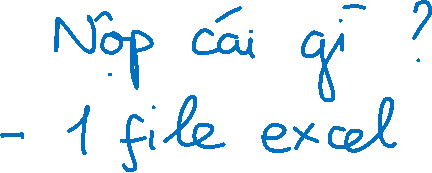 Nộp cái gì ?
- 1 file excel